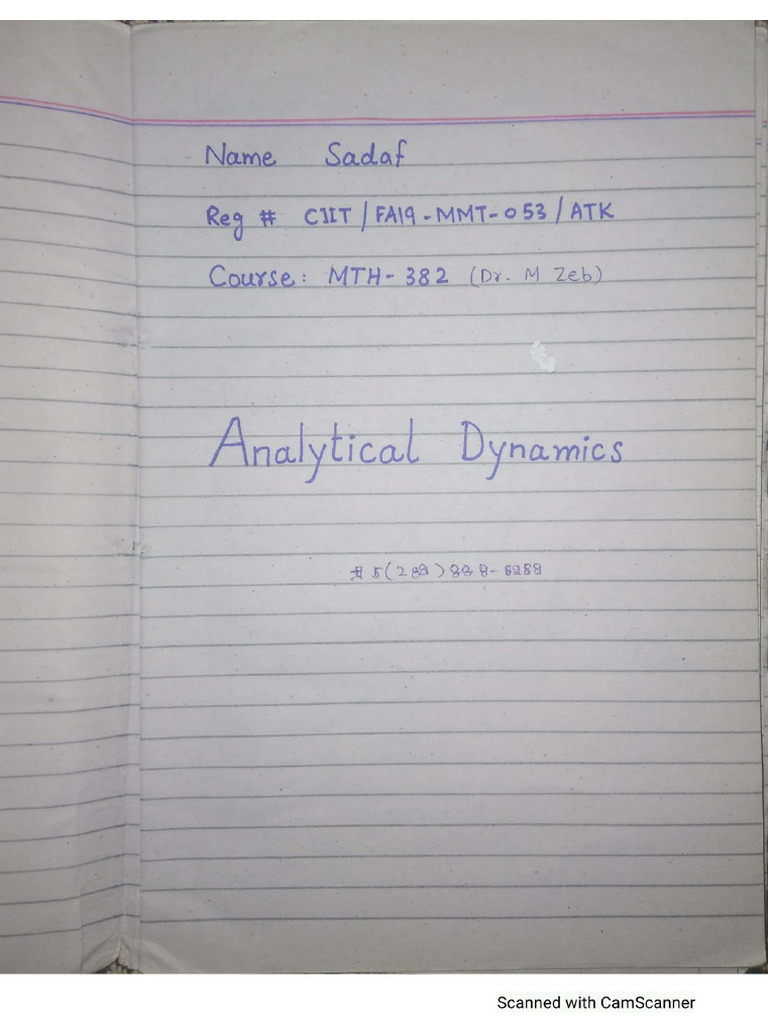 Name Sadaf
Reg # CIIT/FA19-MMT-053/ATK
Course: MTH-382 (Dr. M Zeb)
Analytical Dynamics
Scanned with CamScanner